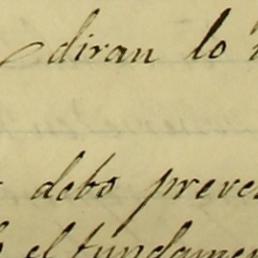 diran lo
debo preve
el fundamen